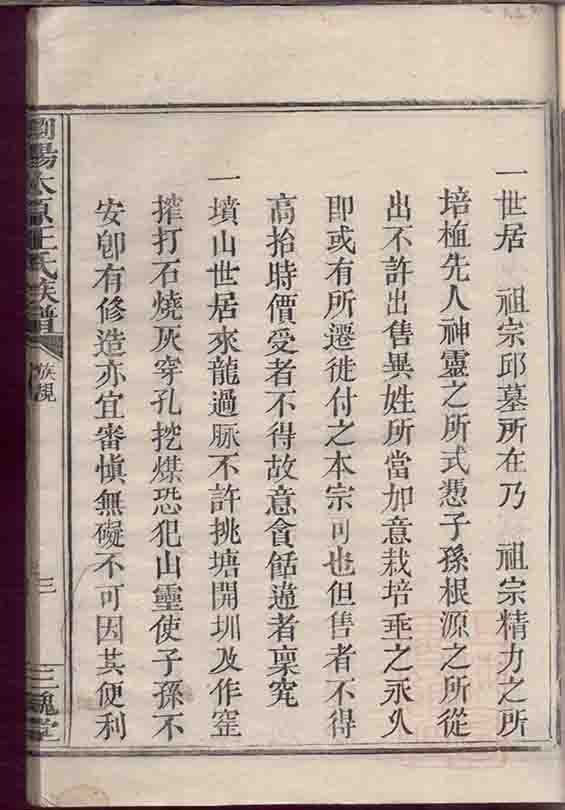 一世居 祖宗邱墓所在乃 祖宗精力之所
培植先人神靈之所式憑子孫根源之所從
出不許出售異姓所當加意栽培垂之永久
即或有所遷徙付之本宗可也但售者不得
高抬時價受者不得故意貪餂違者稟究
一墳山世居來龍過脉不許挑塘開圳及作窑
搾打石燒灰穿孔挖煤恐犯山靈使子孫不
安卽有修造亦宜審慎無礙不可因其便利
瀏陽太原王氏族譜 族規 三 三槐堂